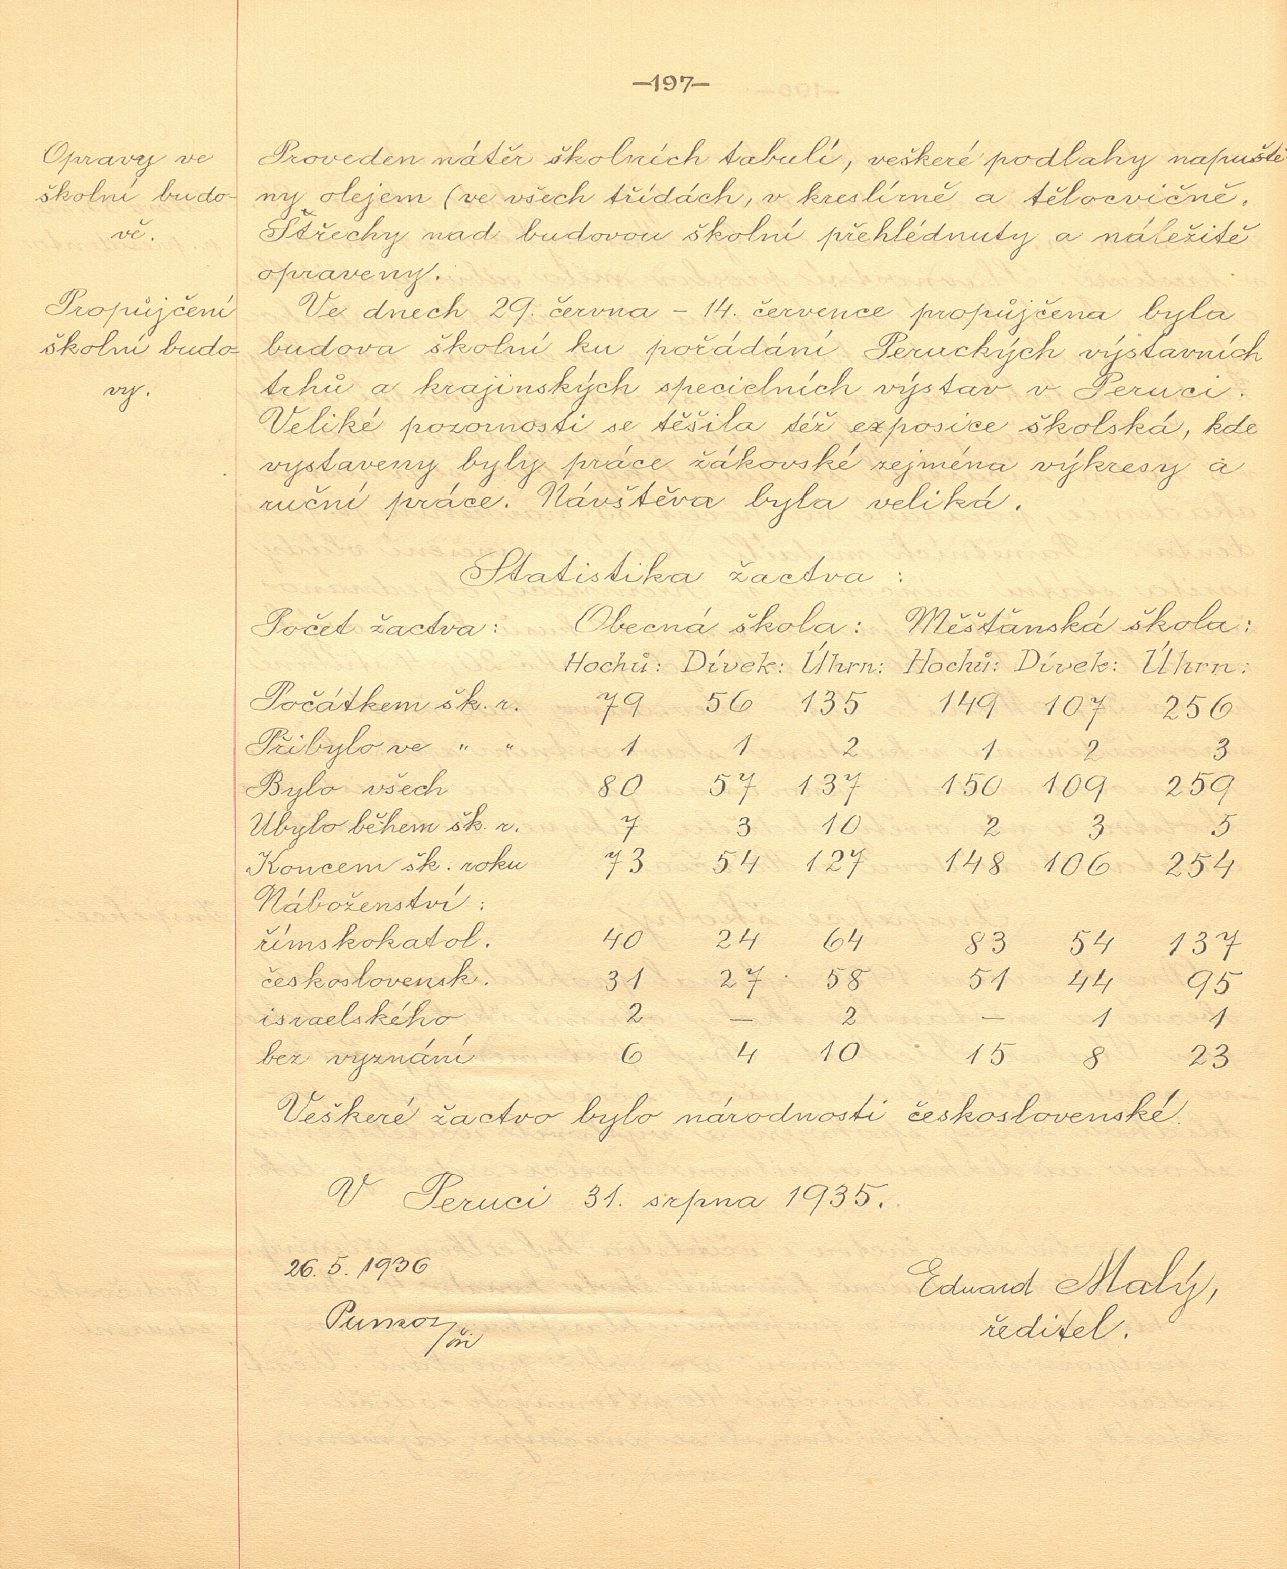 —197—
Opravy ve
školní budo-
vě.
Proveden nátěr školních tabulí, veškeré podlahy napuště
ny olejem (ve všech třídách, v kreslírně a tělocvičně.
Střechy nad budovou školní přehlédnuty a náležitě
opraveny.
Propůjčení
školní budo-
vy.
Ve dnech 29. června – 14. července propůjčena byla
budova školní ku pořádání Peruckých výstavních
trhů a krajinských specielních výstav v Peruci.
Veliké pozornosti se těšila též exposice školská, kde
vystaveny byly práce žákovské zejména výkresy a
ruční práce. Návštěva byla veliká.
Statistika žactva :
Počet žactva : Obecná škola : Měšťanská škola :
Hochů : Dívek : Úhrn : Hochů : Dívek : Úhrn :
Počátkem šk. r. 79 56 135 149 107 256
Přibylo ve " " 1 1 2 1 2 3
Bylo všech 80 57 137 150 109 259
Ubylo během šk. r. 7 3 10 2 3 5
Koncem šk. roku 73 54 127 148 106 254
Náboženství :
římskokatol. 40 24 64 83 54 137
československ. 31 27 58 51 44 95
israelského 2 — 2 — 1 1
bez vyznání 6 4 10 15 8 23
Veškeré žactvo bylo národnosti československé.
V Peruci 31. srpna 1935.
26. 5. 1936
Eduard Malý,
ředitel.